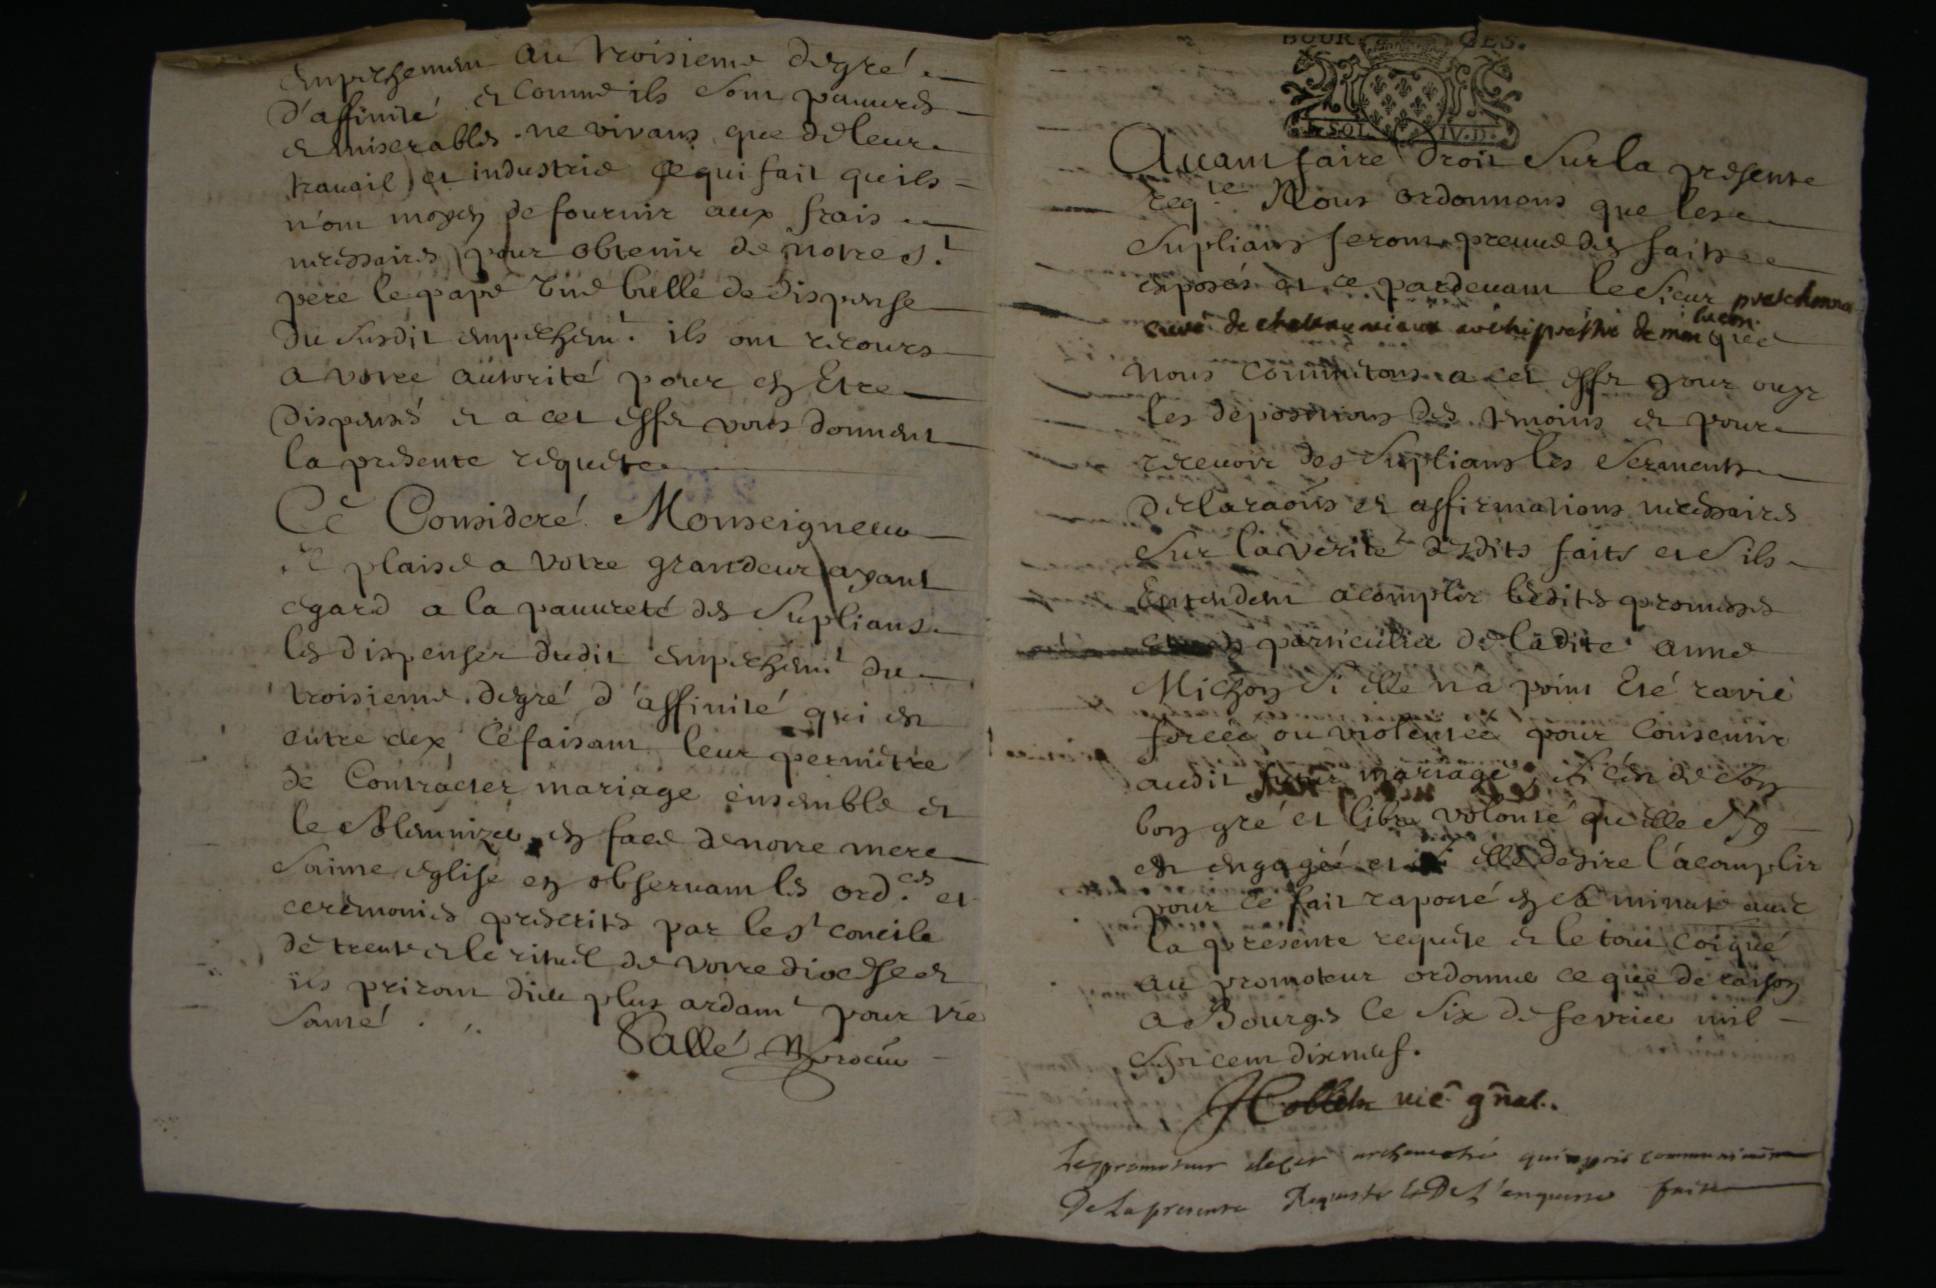 empeschement au troisieme degré
d'affinité et comme ils sont pauures
et miserables ne vivans que de leur
trauail et industrie ce qui fait qu'ils
n'ont moyen de fournir aux frais
necessaires pour obtenir de notre St.
pere le pape une bulle de dispense
du susdit empeschemt. ils ont recours
a votre autorité pour en Etre
dispensés et a cet effet vous donnent
la presente requete
Ce Consideré Monseigneur
il plaise a votre grandeur ayant
egard a la pauureté des Suplians
les dispenser dudit empeschemt du
troisieme degré d'affinité qui est
entre eux Ce faisant leur permettre
de Contracter mariage ensemble et
le solemnizer en face de notre mere
Sainte eglise en observant les ordces. et
ceremonies prescrits par le St concile
de trente et le rituel de votre diocese et
ils priront dieu plus ardamt pour vre
santé.
Sallé Procur
BOURGES.
SOL. IV.D.
Auant faire droit Sur la presente
reqte Nous ordonnons que les
Suplians feront preuue des faits
exposés et ce pardeuant le Sieur
curé de archiprestre de que
Nous Commettons a cet effet pour ouyr
les depositions des temoins et pour
receuoir des Suplians les Serments
declaraons et affirmations necessaires
Sur la verité desdits faits et s'ils
Entendent acomplir lesdites promesses
et en particulier de ladite anne
Michon si elle n'a point Eté ravie
forcée ou violentée pour Consentir
audit futur mariage, si c'est de son
bon gré et libre volonté qu'elle s'y
est engagée et si elle desire l'acomplir
pour ce fait raporté en sa minute auec
la presente requete et le tout coiqué
au promoteur ordonner ce que de raison
a Bourges le Six de fevrier mil
sept cent dixneuf.
vic. gñal.
Le promoteur de cet archeuesché qui a pris communication
De la presente Requeste et De L'enqueste faite